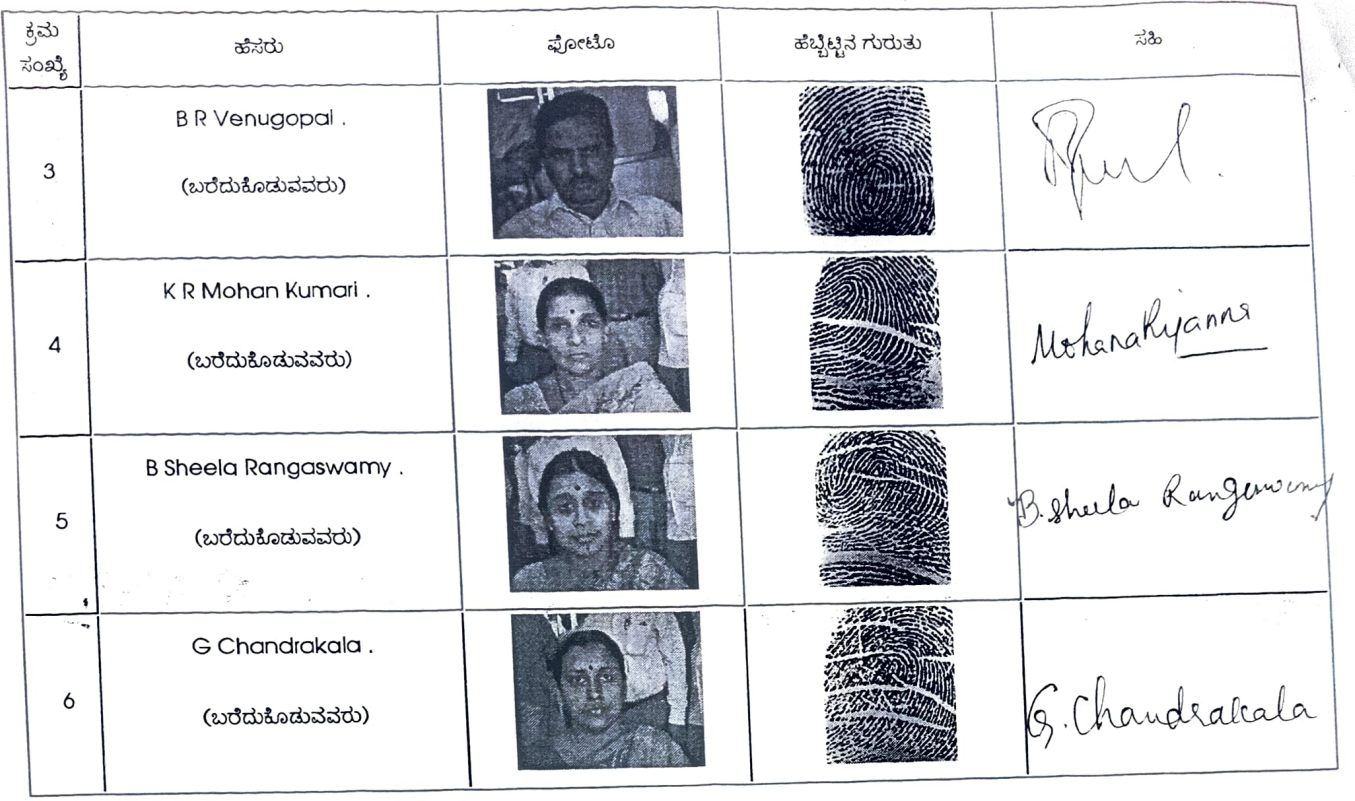 ಕ್ರಮ ಸಂಖ್ಯೆ ಹೆಸರು ಫೋಟೊ ಹೆಬ್ಬೆಟ್ಟಿನ ಗುರುತು ಸಹಿ
3 B R Venugopal .
(ಬರೆದುಕೊಡುವವರು)
4 K R Mohan Kumari .
(ಬರೆದುಕೊಡುವವರು)
5 B Sheela Rangaswamy . B. Sheela Rangaswamy
(ಬರೆದುಕೊಡುವವರು)
6 G Chandrakala .
(ಬರೆದುಕೊಡುವವರು) G. Chandrakala